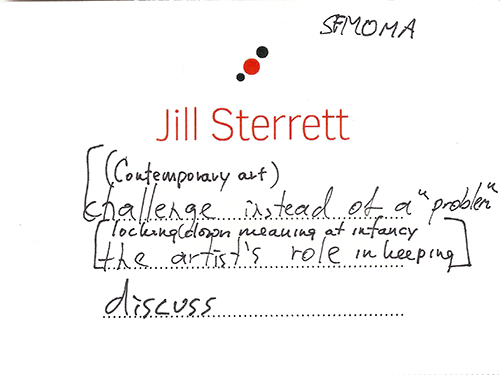 SFMOMA
Jill Sterrett
[(Contemporary art)
challenge instead of a "problem"
[locking down meaning at infancy
the artist's role in keeping]
discuss